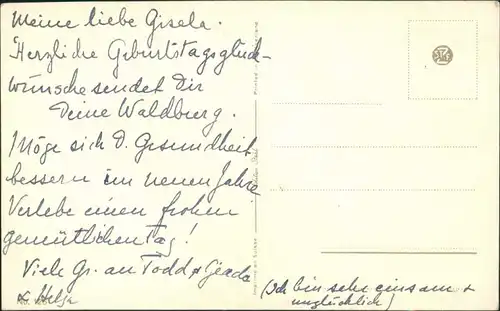 Meine liebe Gisela.
Herzliche Geburtstagsglück-
wünsche sendet Dir
Deine Waldburg.
Möge sich D. Gesundheit
bessern im neuen Jahre
Verlebe einen frohen
gemütlichen Tag!
Viele Gr. an Todd + Gerda
+ Helga
(Ich bin sehr einsam +
unglücklich)